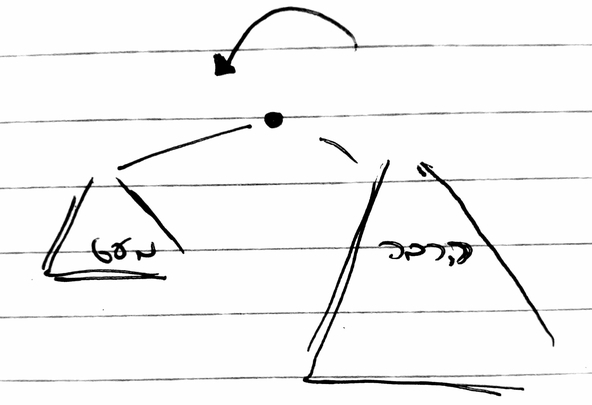 מעט
הרבה